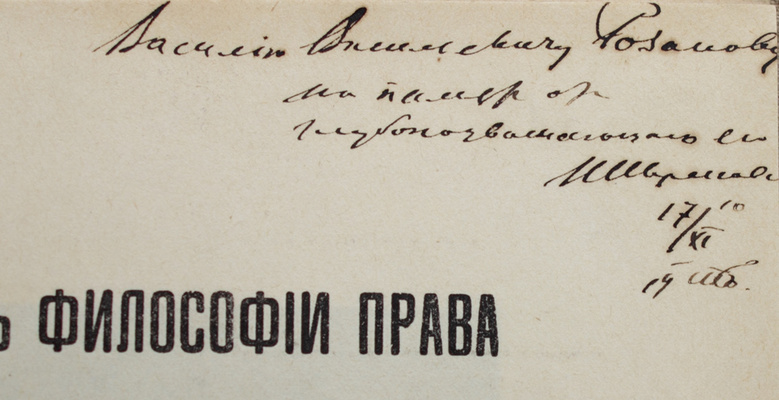 Василію Васильевичу Розанову
на память от
глубокоуважающаго его
17/XI
Ъ ФИЛОСОФІИ ПРАВА